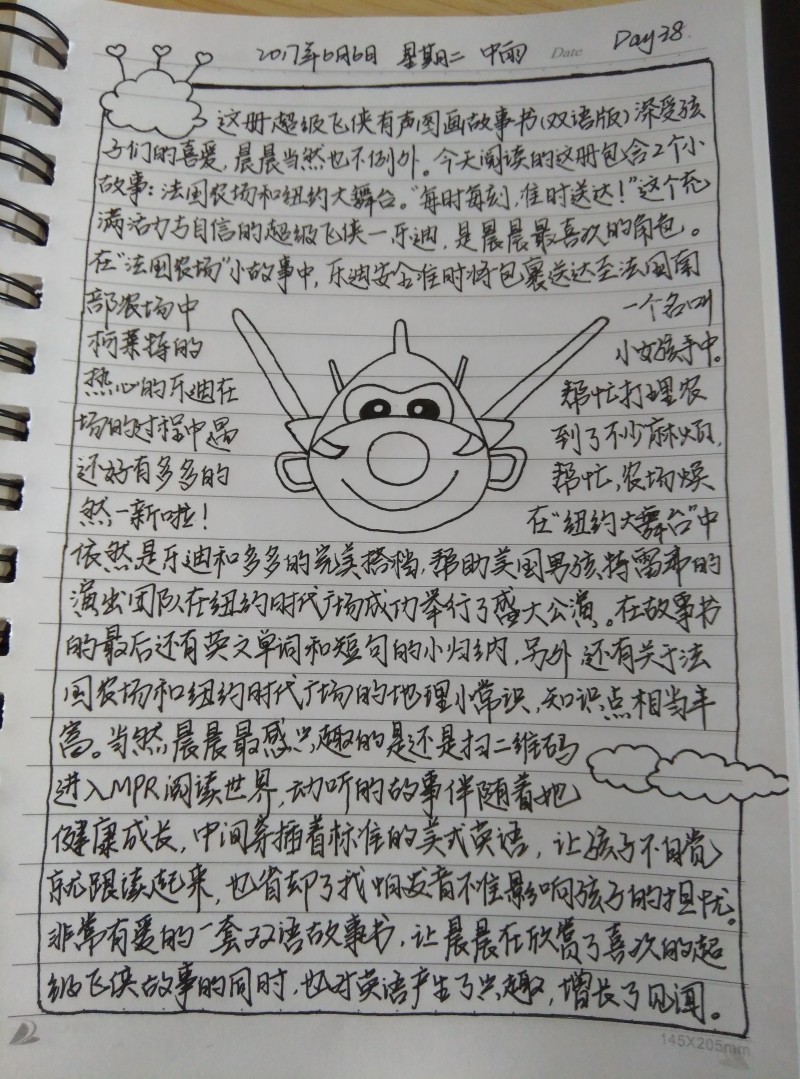 2017年6月6日 星期二 中雨 Date Day38.
这册超级飞侠有声图画故事书(双语版)深受孩
子们的喜爱,晨晨当然也不例外。今天阅读的这册包含2个小
故事:法国农场和纽约大舞台。“每时每刻,准时送达!”这个充
满活力与自信的超级飞侠—乐迪,是晨晨最喜欢的角色。
在“法国农场”小故事中,乐迪安全准时将包裹送达至法国南
部农场中 一个名叫
柯莱特的 小女孩手中。
热心的乐迪在 帮忙打理农
场的过程中遇 到了不少麻烦,
还好有多多的 帮忙,农场焕
然一新啦! 在“纽约大舞台”中
依然是乐迪和多多的完美搭档,帮助美国男孩特雷弗的
演出团队在纽约时代广场成功举行了盛大公演。在故事书
的最后还有英文单词和短句的小归纳,另外还有关于法
国农场和纽约时代广场的地理小常识,知识点相当丰
富。当然晨晨最感兴趣的是还是扫二维码
进入MPR阅读世界,动听的故事伴随着她
健康成长,中间穿插着标准的美式英语,让孩子不自觉
就跟读起来,也省却了我怕发音不准影响孩子的担忧。
非常有爱的一套双语故事书,让晨晨在欣赏了喜欢的超
级飞侠故事的同时,也对英语产生了兴趣,增长了见闻。
145X205mm